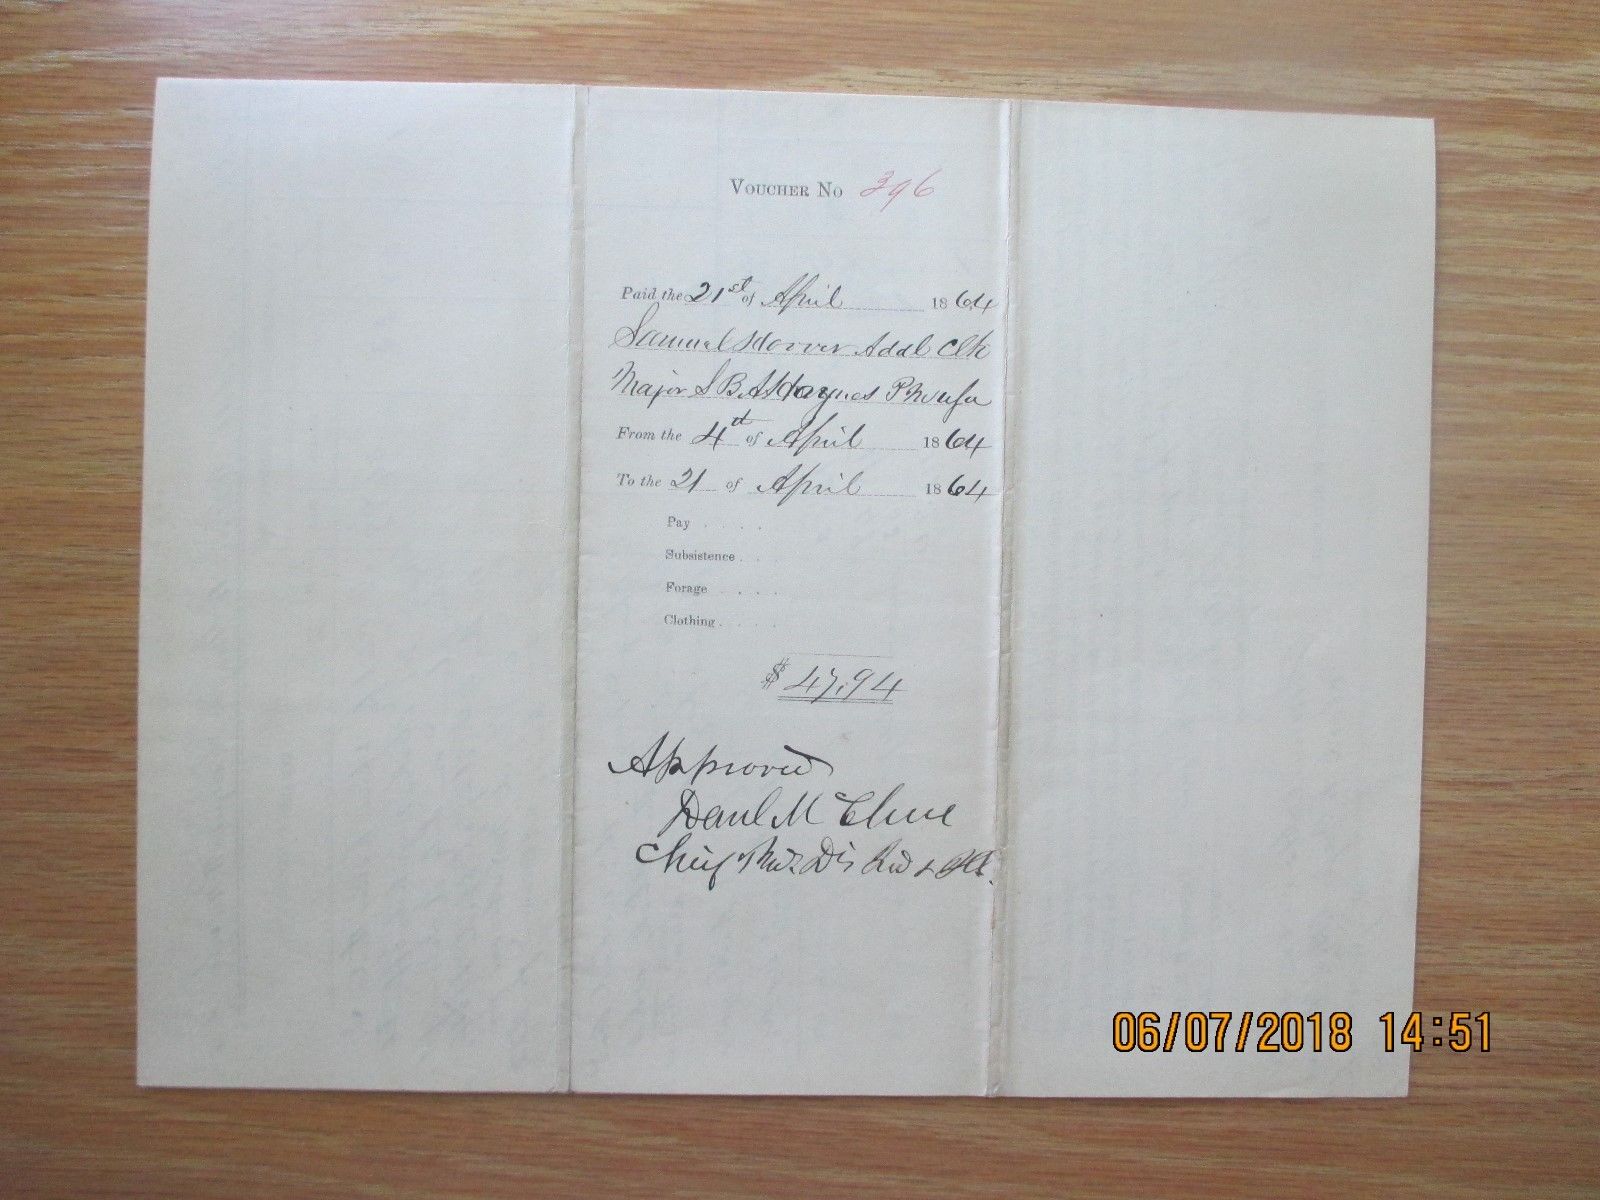 VOUCHER No 396
Paid the 21st of April 1864
Samuel Hoover Addl Clk
Major S B A Haynes
From the 4th of April 1864
To the 21 of April 1864
Pay . . . .
Subsistence . . .
Forage . . . .
Clothing . . . .
$ 47.94
Approved
Chief Dis
06/07/2018 14:51